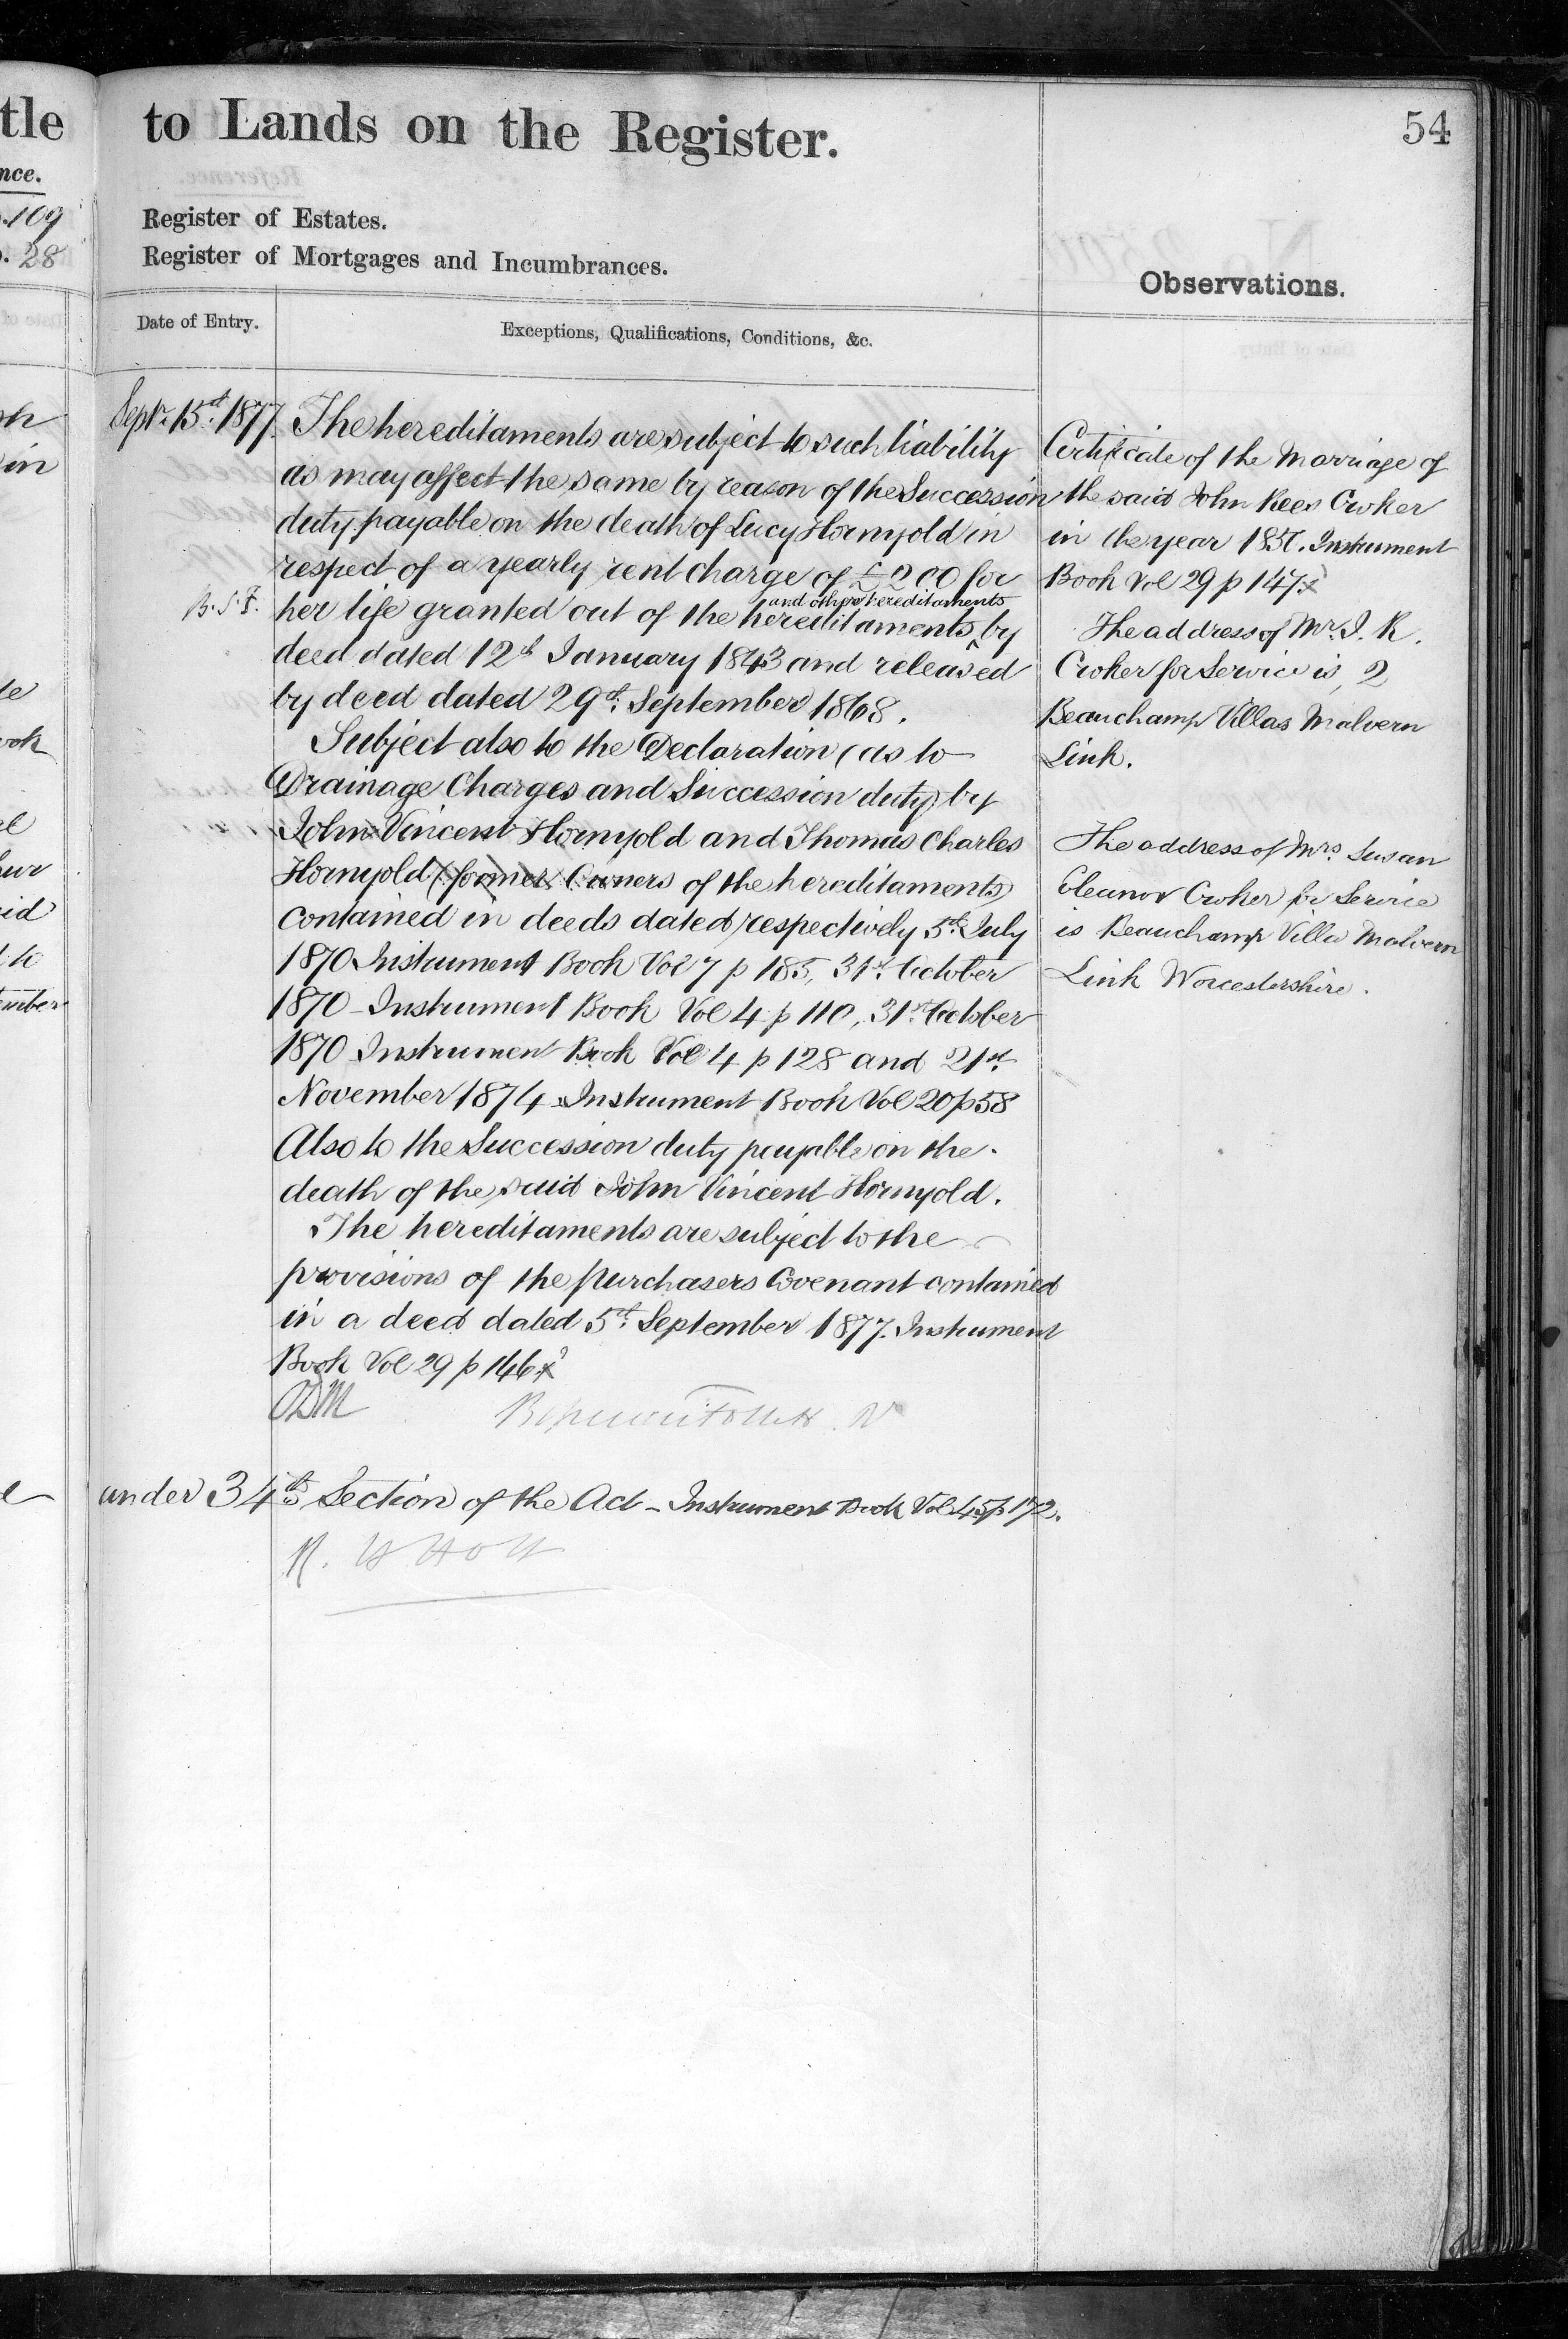 tle to Lands on the Register.
54
nce.
109 Register of Estates.
28 Register of Mortgages and Incumbrances.
Observations.
Date of Entry.
Exceptions, Qualifications, Conditions, &c.
Septr. 15th 1877.
The hereditaments are subject to such liability
as may affect the same by reason of the Succession
duty payable on the death of Lucy Hornyold in
respect of a yearly rent charge of £200 for
and other hereditaments
her life granted out of the hereditaments ‸ by
deed dated 12th January 1843 and released
by deed dated 29th September 1868.
Subject also to the Declaration (as to
Drainage Charges and Succession duty) by
John Vincent Hornyold and Thomas Charles
Hornyold (former Owners of the hereditaments)
contained in deeds dated respectively 5th July
1870 Instrument Book Vol 7 p 185, 31st October
1870 - Instrument Book Vol 4 p 110, 31st October
1870 Instrument Book Vol 4 p 128 and 21st
November 1874 Instrument Book Vol 20 p 58
Also to the Succession duty payable on the
death of the said John Vincent Hornyold.
The hereditaments are subject to the
provisions of the purchasers Covenant contained
in a deed dated 5th September 1877. Instrument
Book Vol 29 p 146
under 34th Section of the Act - Instrument Book Vol 45 p 172.
Certificate of the Marriage of
the said John Rees Croker
in the year 1857. Instrument
Book Vol 29 p 147
The address of Mr. J. R.
Croker for Service is, 2
Beauchamp Villas Malvern
Link.
The address of Mrs. Susan
Eleanor Croker for Service
is Beauchamp Villa Malvern
Link Worcestershire.